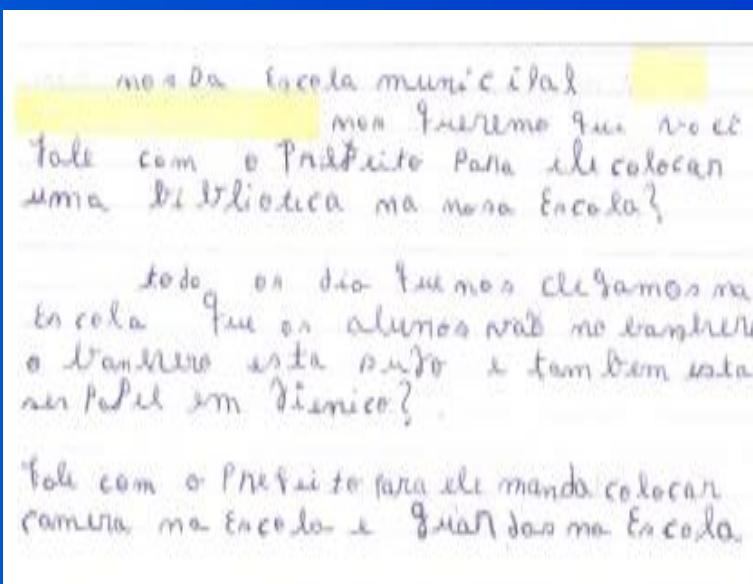 nos Da Escola municipal
nos queremo que você
fale com o Prefeito Para ele colocar
uma biblioteca na nosa Escola?
todo os dia que nos clegamos na
Escola que os alunos vão no banhero
o banhero esta sujo e tambem esta
ser PaPel em Jienico?
Fale com o Prefeito para ele manda colocar
camera na Escola e guardas na Escola